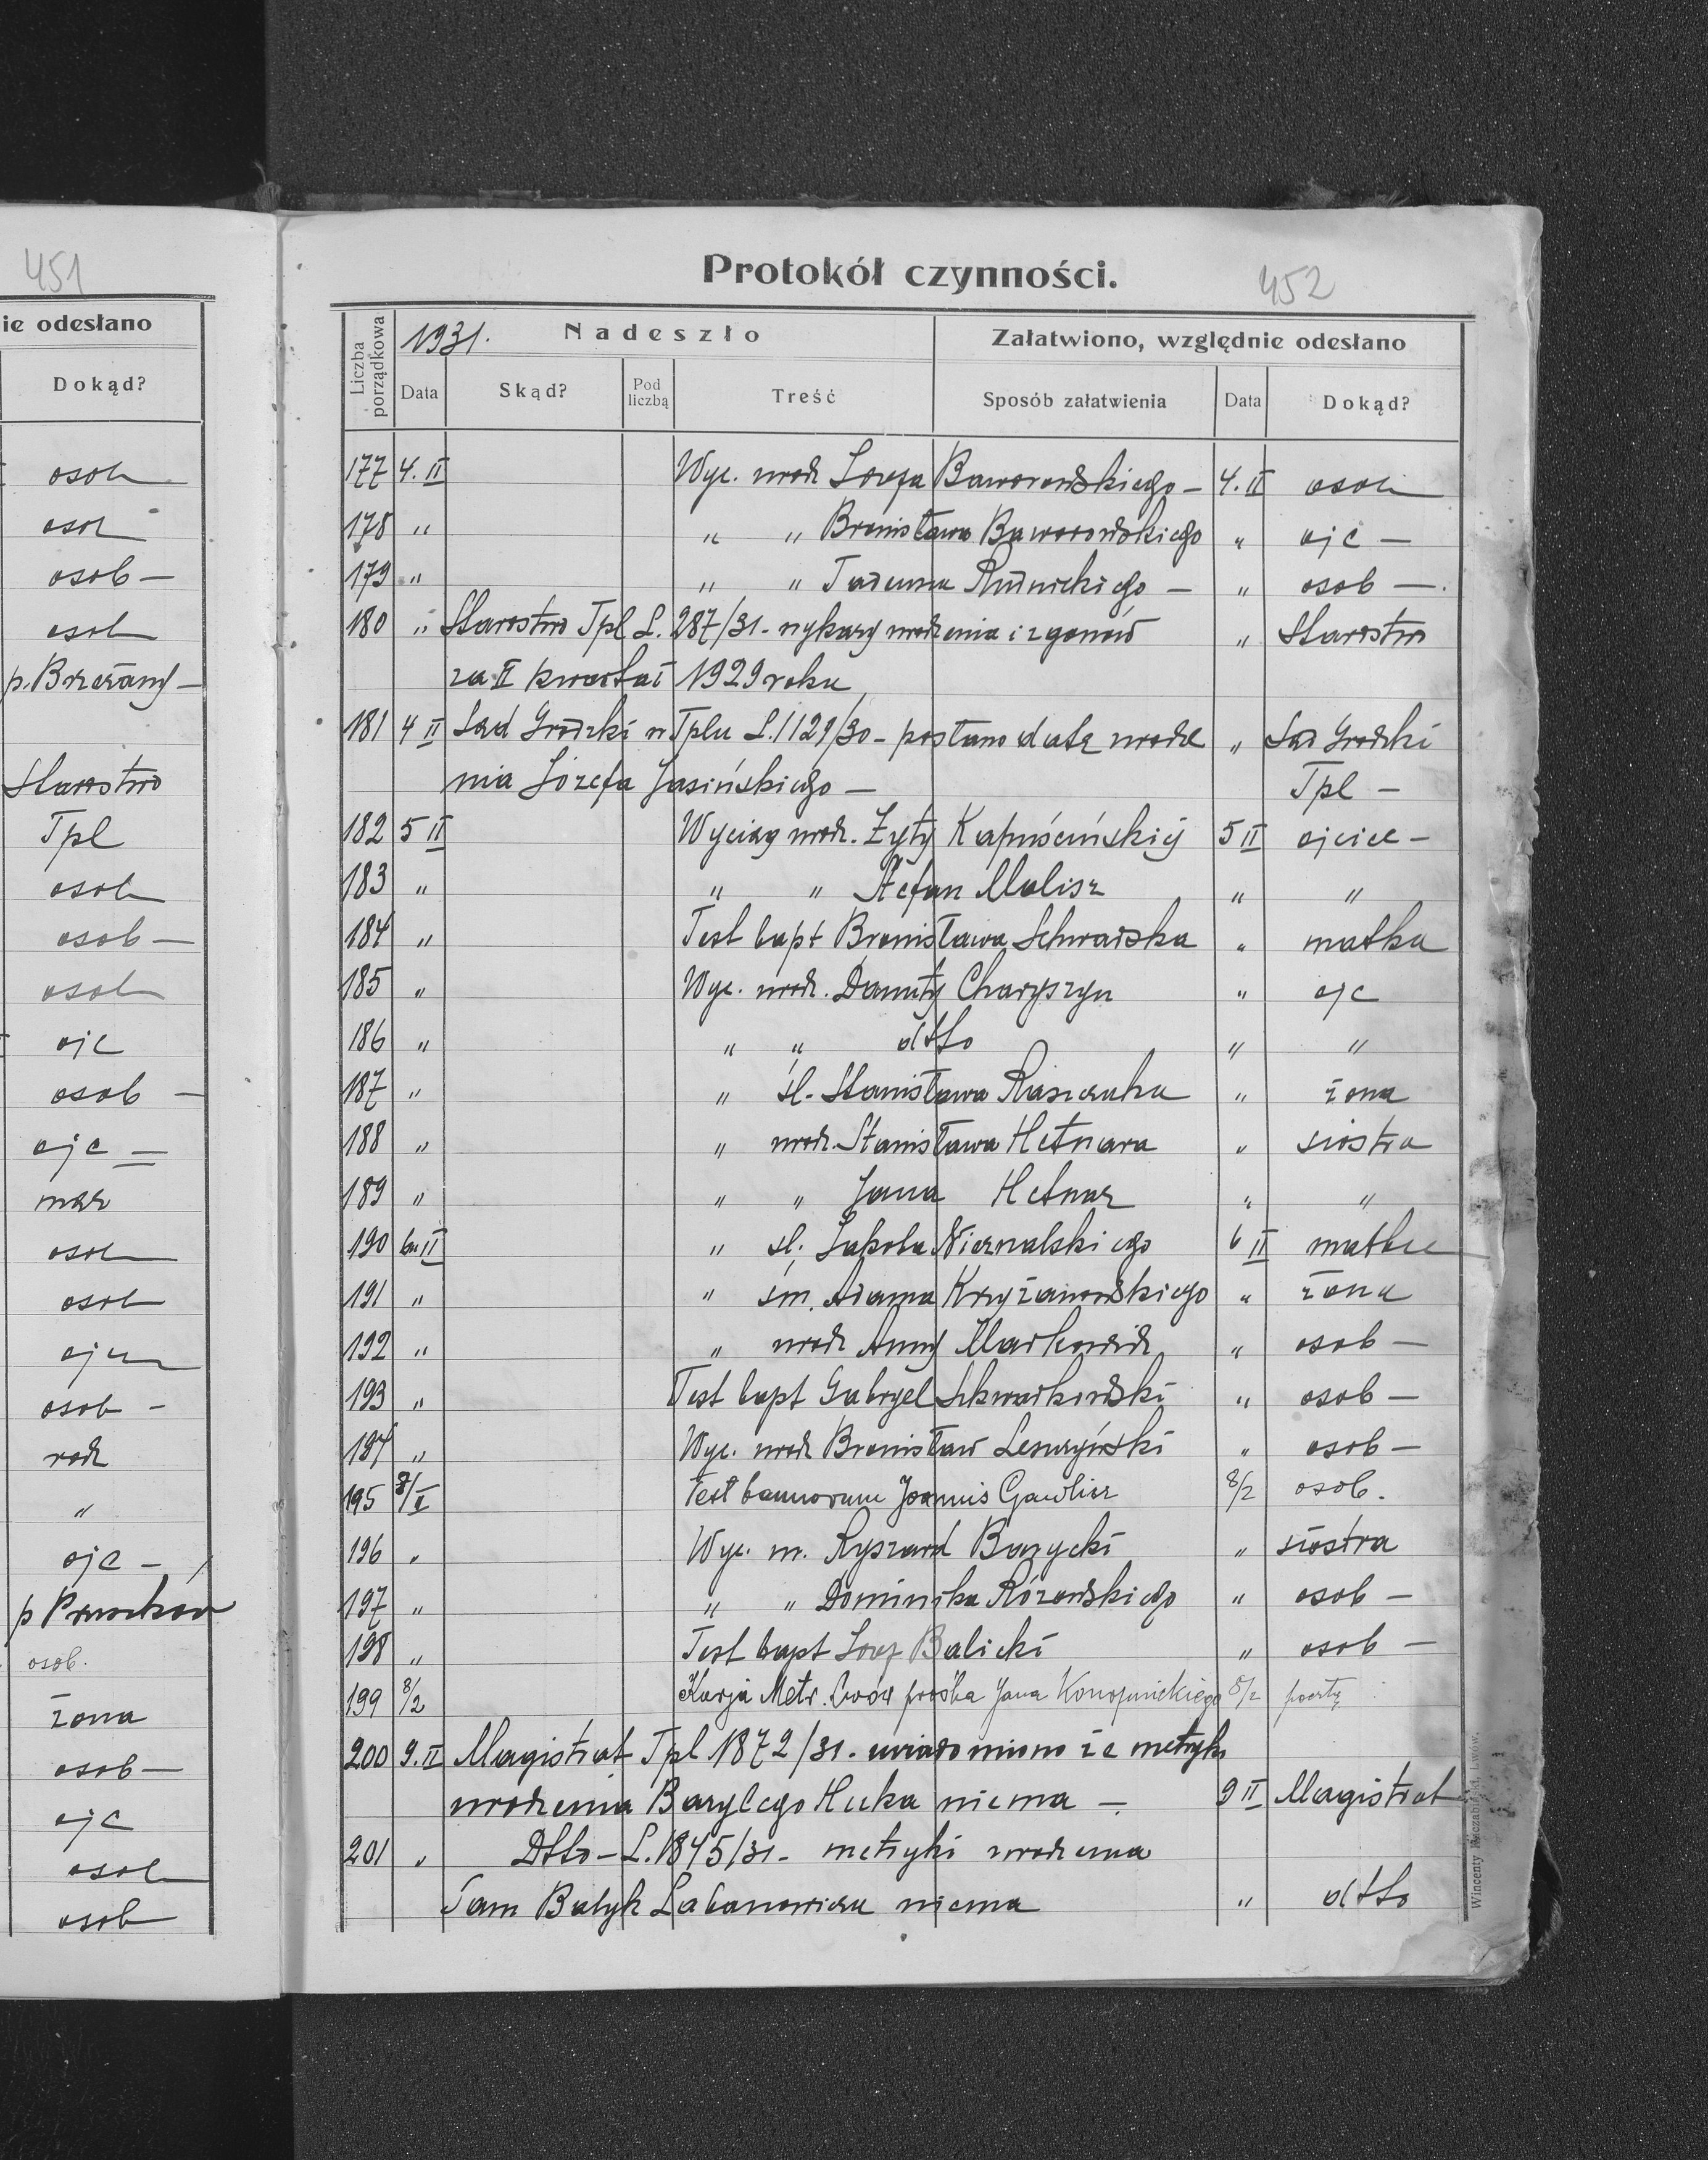 451
ie odesłano
Dokąd?
osob
osob
osob —
osob
p. Brzeżany —
Starostwo
Tpl
osob
osob —
osob
ojc
osob —
ojc —
mąż
osob
osob
osob -
rodz
"
ojc —
p Pruszków
osob.
żona
osob —
ojc
osob
osob
Protokół czynności.
452
Liczba porządkowa
1931.
Nadeszło
Załatwiono, względnie odesłano
Data
Skąd?
Pod liczbą
Treść
Sposób załatwienia
Data
Dokąd?
177 4. II Wyc. urodz Józefa Baworowskiego — 4. II osob
178 " " " Bronisława Baworowskiego " ojc —
179 " " " Tadeusza Rudnickiego — " osob —
180 " Starostwo Tpl L. 287/31 - wykazy urodzenia i zgonów " Starostwo
za II kwartał 1929 roku
181 4 II Sąd Grodzki w Tplu L. 1129/30 - posłano datę urodze " Sąd Grodzki
nia Józefa Jasińskiego — Tpl —
182 5 II Wyciąg urodz. Zyty Kapuścińskiej 5 II ojciec —
183 " " " Stefan Malisz " "
184 " Test bapt Bronisława Schwarska " matka
185 " Wyc. urodz. Danuty Charyszyn " ojc
186 " " " dtto " "
187 " " śl. Stanisława Raszczuka " żona
188 " " urodz. Stanisława Hetnara " siostra
189 " " " Jana Hetnar " "
190 6 II " śl. Jakoba Niernalskiego 6 II matka
191 " " śm. Adama Krzyżanowskiego " żona
192 " " urodz Anny Markowicz " osob —
193 " Test bapt Gabryel Skwarkowski " osob —
194 " Wyc. urodz Bronisław Leszczyński " osob —
195 8/II Test bannorum Joannis Gawlicz 8/2 osob.
196 " Wyc. m. Ryszard Barycki " siostra
197 " " " Dominika Różewskiego " osob —
198 " Test bapt Józef Balicki " osob —
199 8/2 Kurja Metr. Lwów prośba Jana Konopnickiego 8/2 pocztą
200 9. II Magistrat Tpl 1872/31. uwiadomiono że metryki
urodzenia Bazylego Huka niema — 9 II Magistrat
201 " Dtto — L. 1845/31 - metryki urodzenia
Tam Babyk Labanowicza niema " dtto
Wincenty Lwów.